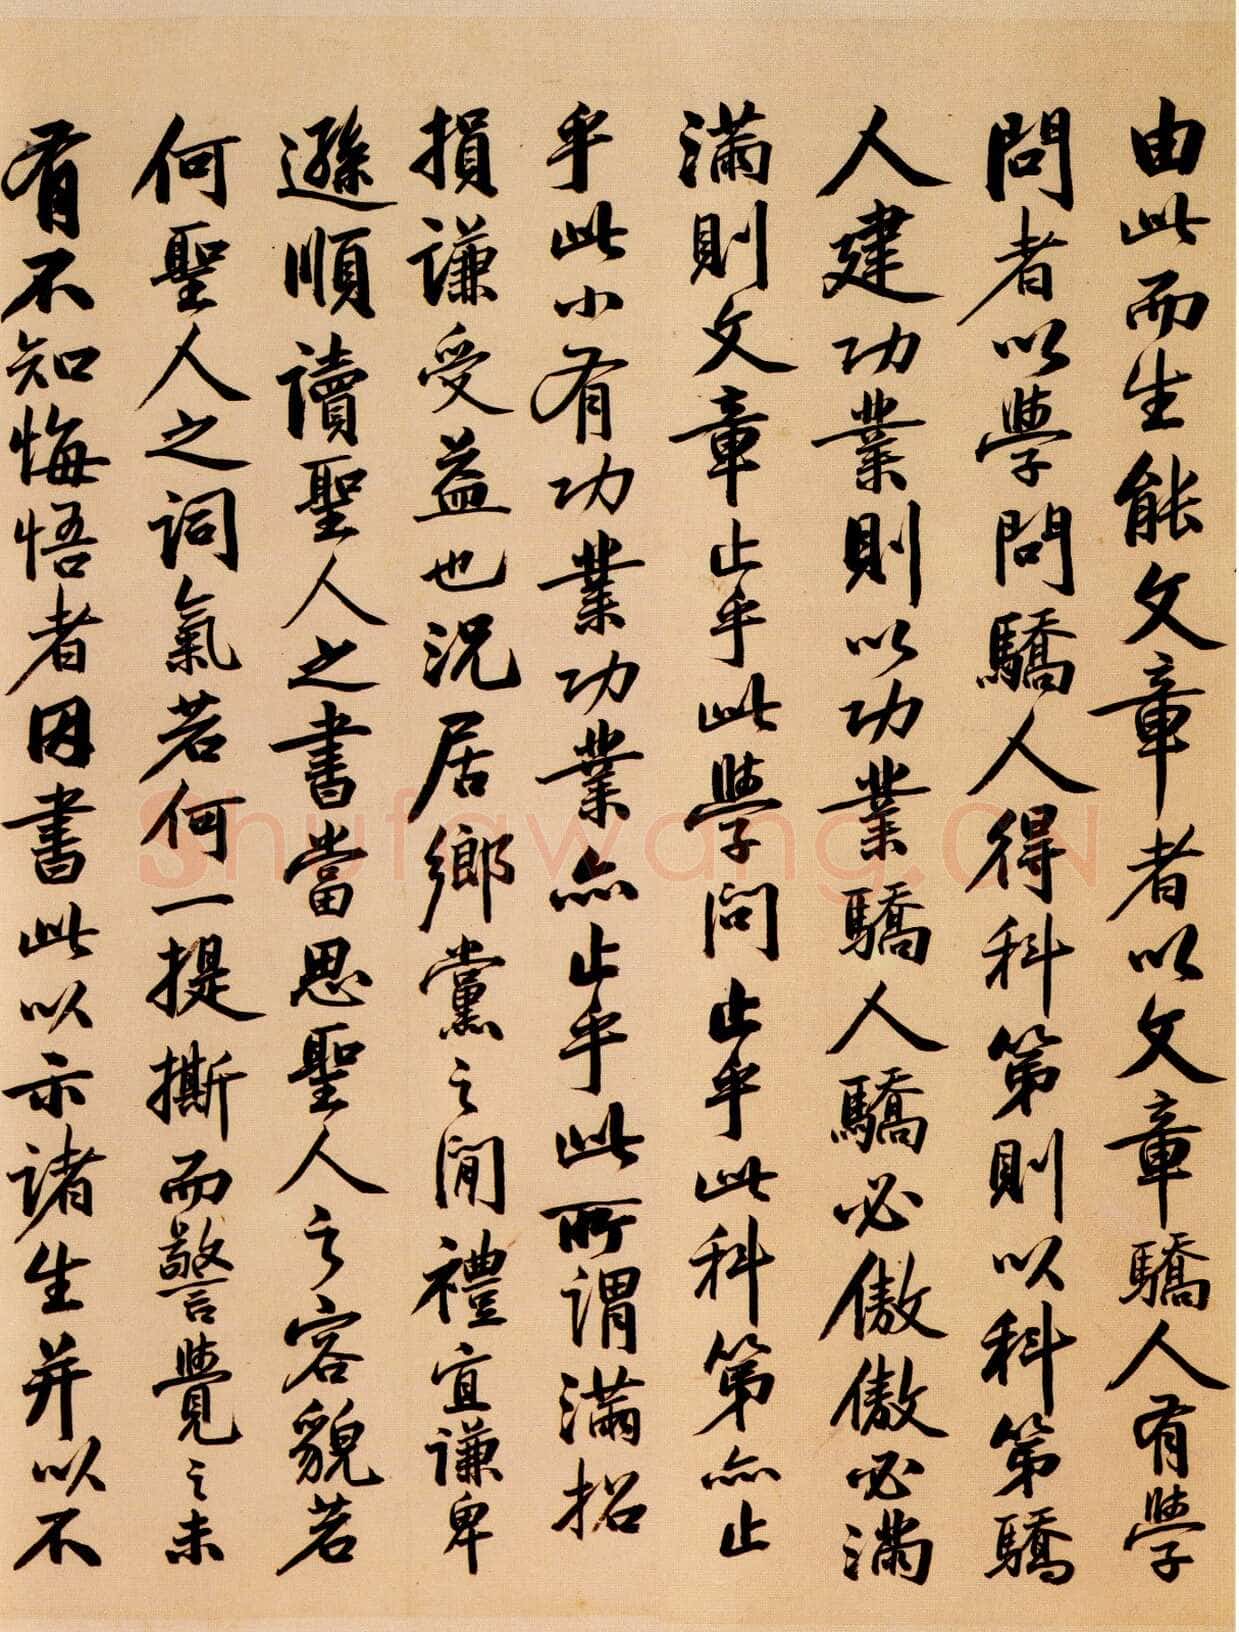 由此而生能文章者以文章驕人有學
問者以學問驕人得科第則以科第驕
人建功業則以功業驕人驕必傲傲必滿
滿則文章止乎此學問止乎此科第亦止
乎此小有功業功業亦止乎此所謂滿招
損謙受益也況居鄉黨之間禮宜謙卑
遜順讀聖人之書當思聖人之容貌若
何聖人之詞氣若何一提撕而警覺之未
有不知悔悟者因書此以示諸生并以不
Shufawang.CN